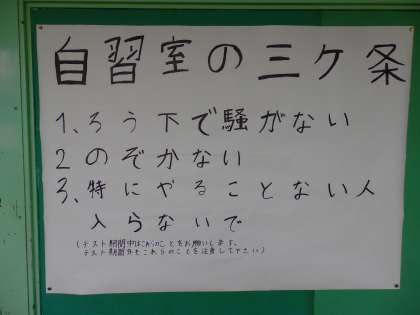 自習室の三ケ条
1、ろう下で騒がない
2 のぞかない
3、特にやることない人
入らないで
(テスト期間中はこれらのことをお願いします。
テスト期間外もこれらのことを注意して下さい)